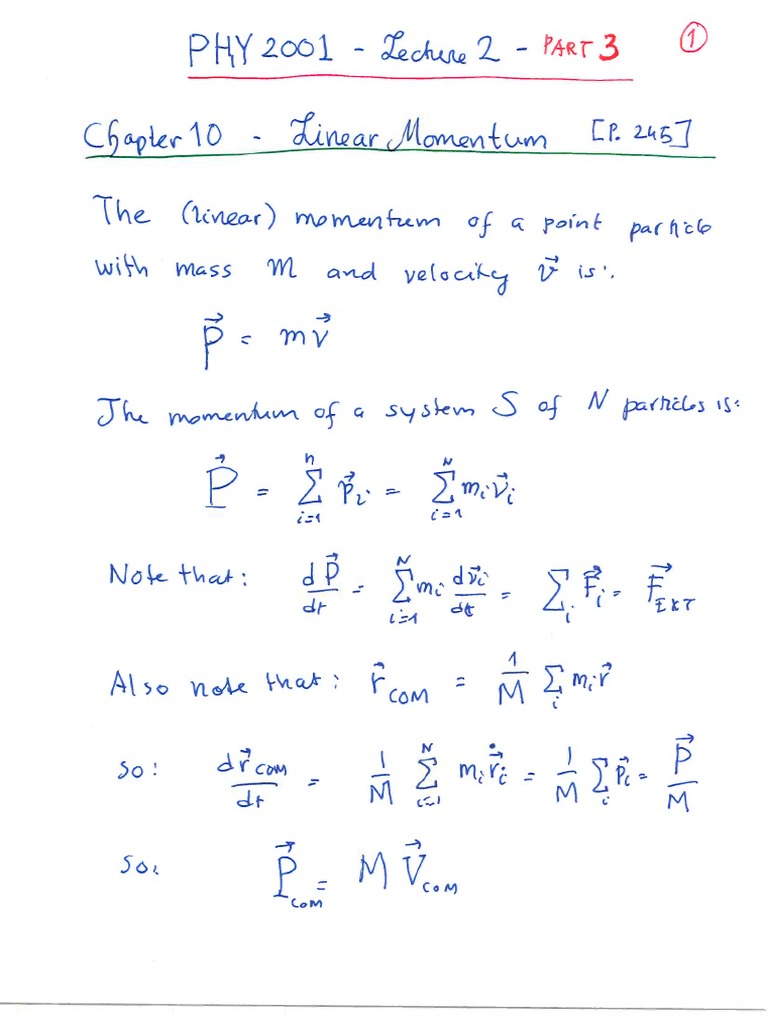 PHY 2001 - Lecture 2 - PART 3 ①
Chapter 10 - Linear Momentum [P. 245]
The (linear) momentum of a point particle
with mass m and velocity v⃗ is:
p⃗ = mv⃗
The momentum of a system S of N particles is:
P⃗ = ∑_{i=1}^{n} p⃗_i = ∑_{i=1}^{N} m_i v⃗_i
Note that: dP⃗/dt = ∑_{i=1}^{N} m_i dv⃗_i/dt = ∑_i F⃗_i = F⃗_EXT
Also note that: r⃗_COM = 1/M ∑_i m_i r⃗
so: dr⃗_COM/dt = 1/M ∑_{i=1}^{N} m_i r⃗̇_i = 1/M ∑_i p⃗_i = P⃗/M
So: P⃗_COM = M V⃗_COM